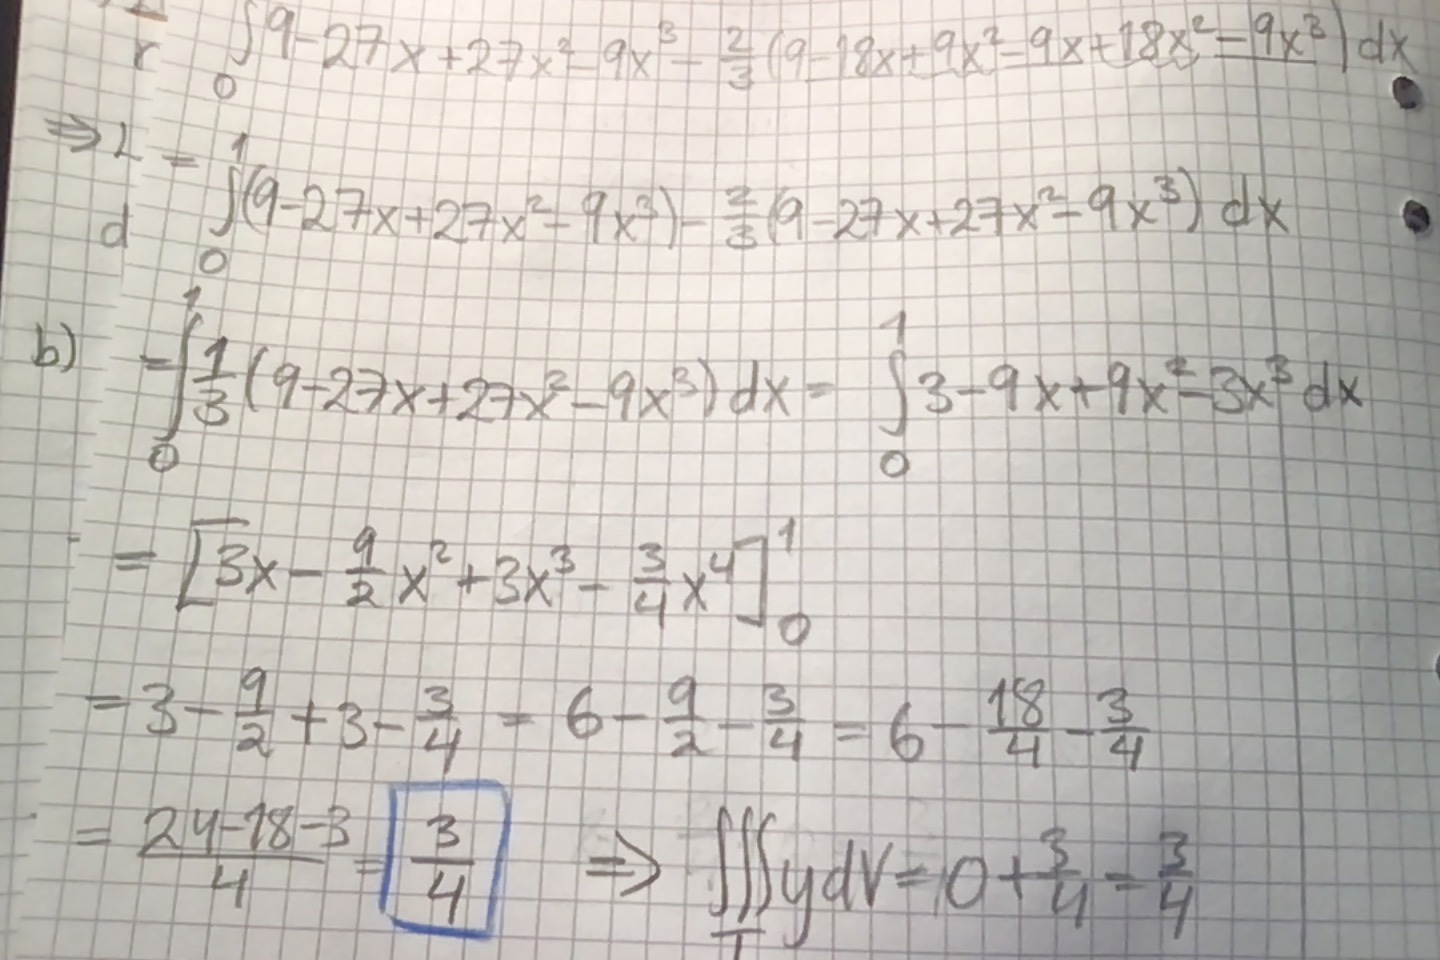 r ∫₀ 9-27x+27x²-9x³ - 2/3 (9-18x+9x²-9x+18x²-9x³) dx
⇒ L = ∫₀¹ (9-27x+27x²-9x³) - 2/3 (9-27x+27x²-9x³) dx
d
b) = ∫₀¹ 1/3 (9-27x+27x²-9x³) dx = ∫₀¹ 3-9x+9x²-3x³ dx
= [3x - 9/2 x² + 3x³ - 3/4 x⁴]₀¹
= 3 - 9/2 + 3 - 3/4 = 6 - 9/2 - 3/4 = 6 - 18/4 - 3/4
= (24-18-3)/4 = 3/4 ⇒ ∭_T y dV = 0 + 3/4 = 3/4